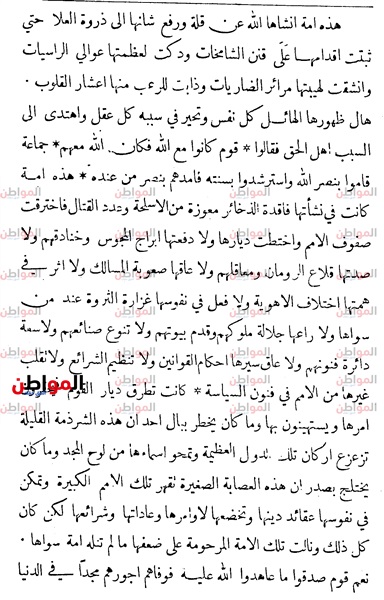 هذه امة انشاها الله عن قلة ورفع شانها الى ذروة العلا حتي
ثبتت اقدامها على قنن الشامخات ودكت لعظمتها عوالي الراسيات
وانشقت لهيبتها مرائر الضاريات وذابت للرعب منها اعشار القلوب ·
هال ظهورها الهائل كل نفس وتحير في سببه كل عقل واهتدى الى
السبب اهل الحق فقالوا * قوم كانوا مع الله فكان الله معهم* جماعة
قاموا بنصر الله واسترشدوا بسنته فامدهم بنصر من عنده* هذه امة
كانت في نشأتها فاقدة الذخائر معوزة من الاسلحة وعدد القتال فاخترقت
صفوف الامم واختطت ديارها ولا دفعتها ابراج المجوس وخنادقهم ولا
صدتها قلاع الرومان ومعاقلهم ولا عاقها صعوبة المسالك ولا اثر في
همتها اختلاف الاهوية ولا فعل في نفوسها غزارة الثروة عند من
سواها ولا راعها جلالة ملوكهم وقدم بيوتهم ولا تنوع صنائعهم ولا سعة
دائرة فنونهم ولا عاق سيرها احكام القوانين ولا تنظيم الشرائع ولا تقلب
غيرها من الامم في فنون السياسة * كانت تطرق ديار القوم
امرها ويستهينون بها وما كان يخطر ببال احد ان هذه الشرذمة القليلة
تزعزع اركان تلك الدول العظيمة وتمحو اسماءها من لوح المجد وما كان
يختلج بصدر ان هذه العصابة الصغيرة تقهر تلك الامم الكبيرة وتمكن
في نفوسها عقائد دينها وتخضعها لاوامرها وعاداتها وشرائعها لكن كان
كل ذلك ونالت تلك الامة المرحومة على ضعفها ما لم تنله امة سواها ·
نعم قوم صدقوا ما عاهدوا الله عليه فوفاهم اجورهم مجداً في الدنيا
المواطن